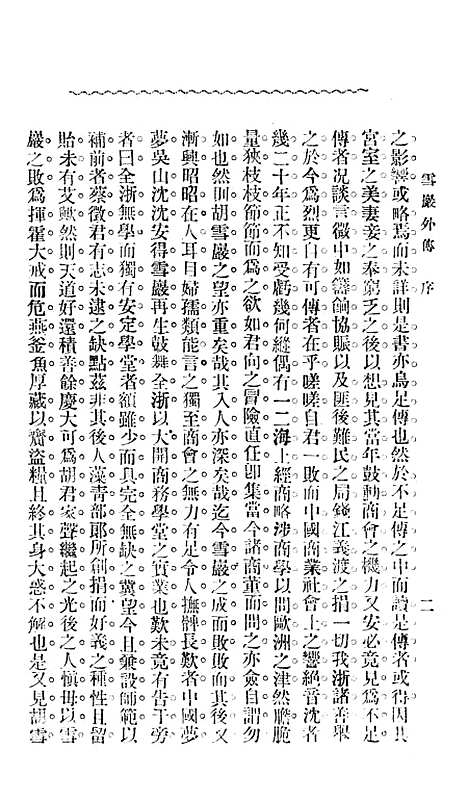 雪巖外傳　序
二
之影響或略焉而未詳則是書亦烏足傳也然於不足傳之中而讀是傳者或得因其
宮室之美妻妾之奉窮乏之後以想見其當年鼓動商會之機力又安必竟見爲不足
傳者况談言微中如籌餉協賑以及匪後難民之局錢江義渡之捐一切我浙諸善舉
之於今爲烈更自有可傳者在乎嗟嗟自君一敗而中國商業社會上之響絕音沈者
幾二十年正不知受虧幾何縫偶有一二海上經商略涉商學以問歐洲之津然膽脆
量狹枝枝節節而爲之欲如君向之冒險直任卽集當今諸商董而問之亦僉自謂勿
如也然則胡雪巖之望亦重矣哉其入人亦深矣哉迄今雪巖之成而敗敗而其後又
漸興昭昭在人耳目婦孺類能言之獨至商會之無力有足令人撫髀長歎者中國夢
夢吳山沈沈安得雪巖再生鼓舞全浙以大開商務學堂之實業也歎未竟有告于旁
者曰全浙無學而獨有安定學堂者額雖少而具完全無缺之冀望今且兼設師範以
補前者蔡徵君有志未逮之缺點茲非其後人藻靑部郞所創捐而好義之種性且留
貽未有艾歟然則天道好還積善餘慶大可爲胡君家聲繼起之光後之人愼毋以雪
巖之敗爲揮霍大戒而危燕釜魚厚藏以齎盜糧且終其身大惑不解也是又見胡雪